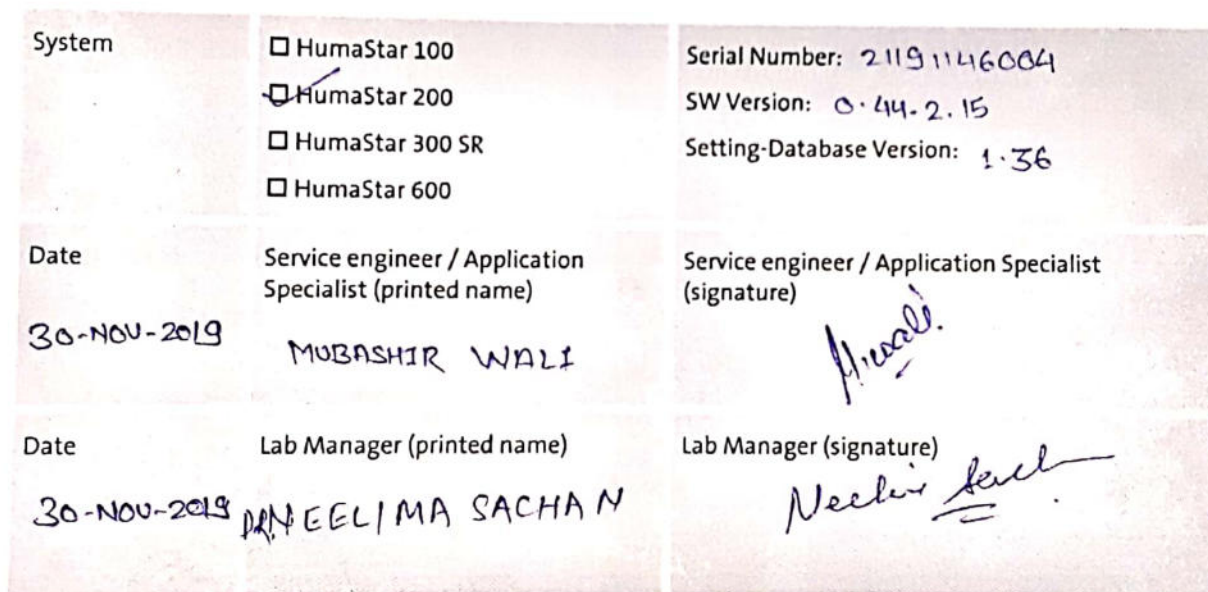 System
☐ HumaStar 100
☑ HumaStar 200
☐ HumaStar 300 SR
☐ HumaStar 600
Serial Number: 21191146004
SW Version: 0.44.2.15
Setting-Database Version: 1.36
Date
30-NOV-2019
Service engineer / Application
Specialist (printed name)
MUBASHIR WALI
Service engineer / Application Specialist
(signature)
Date
30-NOV-2019
Lab Manager (printed name)
DR.NEELIMA SACHAN
Lab Manager (signature)